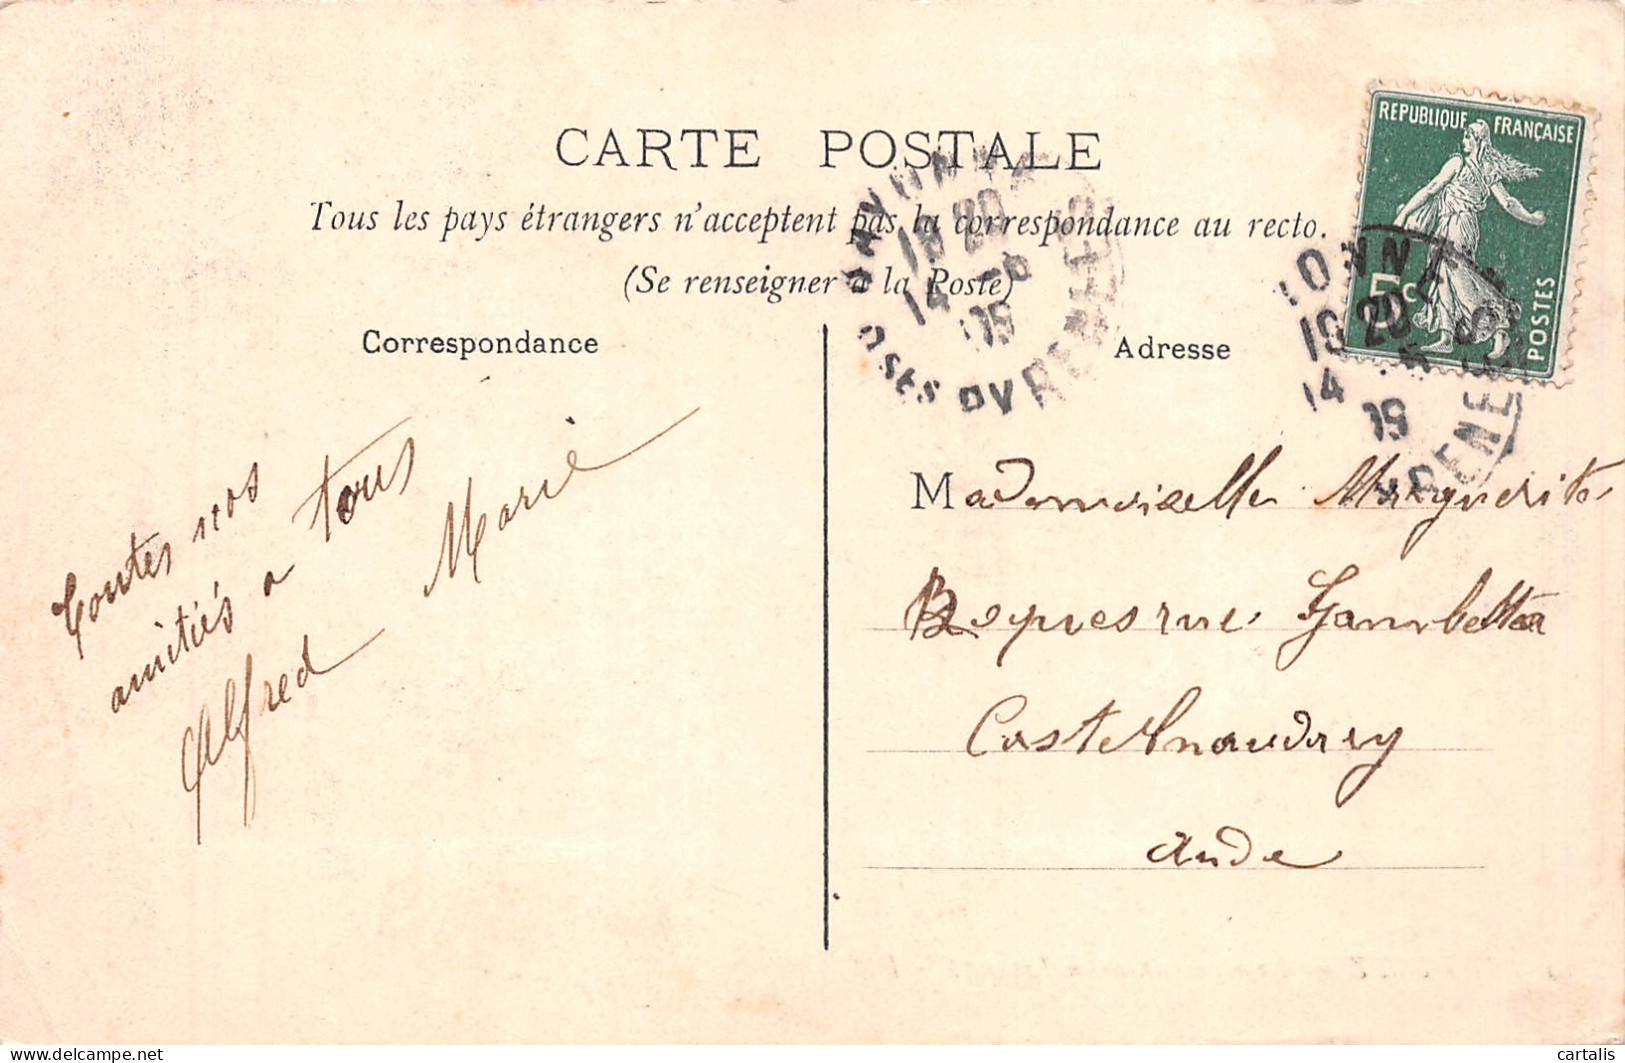 CARTE POSTALE
Tous les pays étrangers n'acceptent pas la correspondance au recto.
(Se renseigner à la Poste)
Correspondance
Adresse
REPUBLIQUE FRANÇAISE
5c
POSTES
BAYONNE
18 20
14
09
BSES PYRENEES
ONNE
19 20
14
19
YRENEES
Toutes nos
amitiés a tous
Alfred Marie
Mademoiselle Marguerite
rue Gambetta
Castelnaudary
Aude
delcampe.net
cartalis